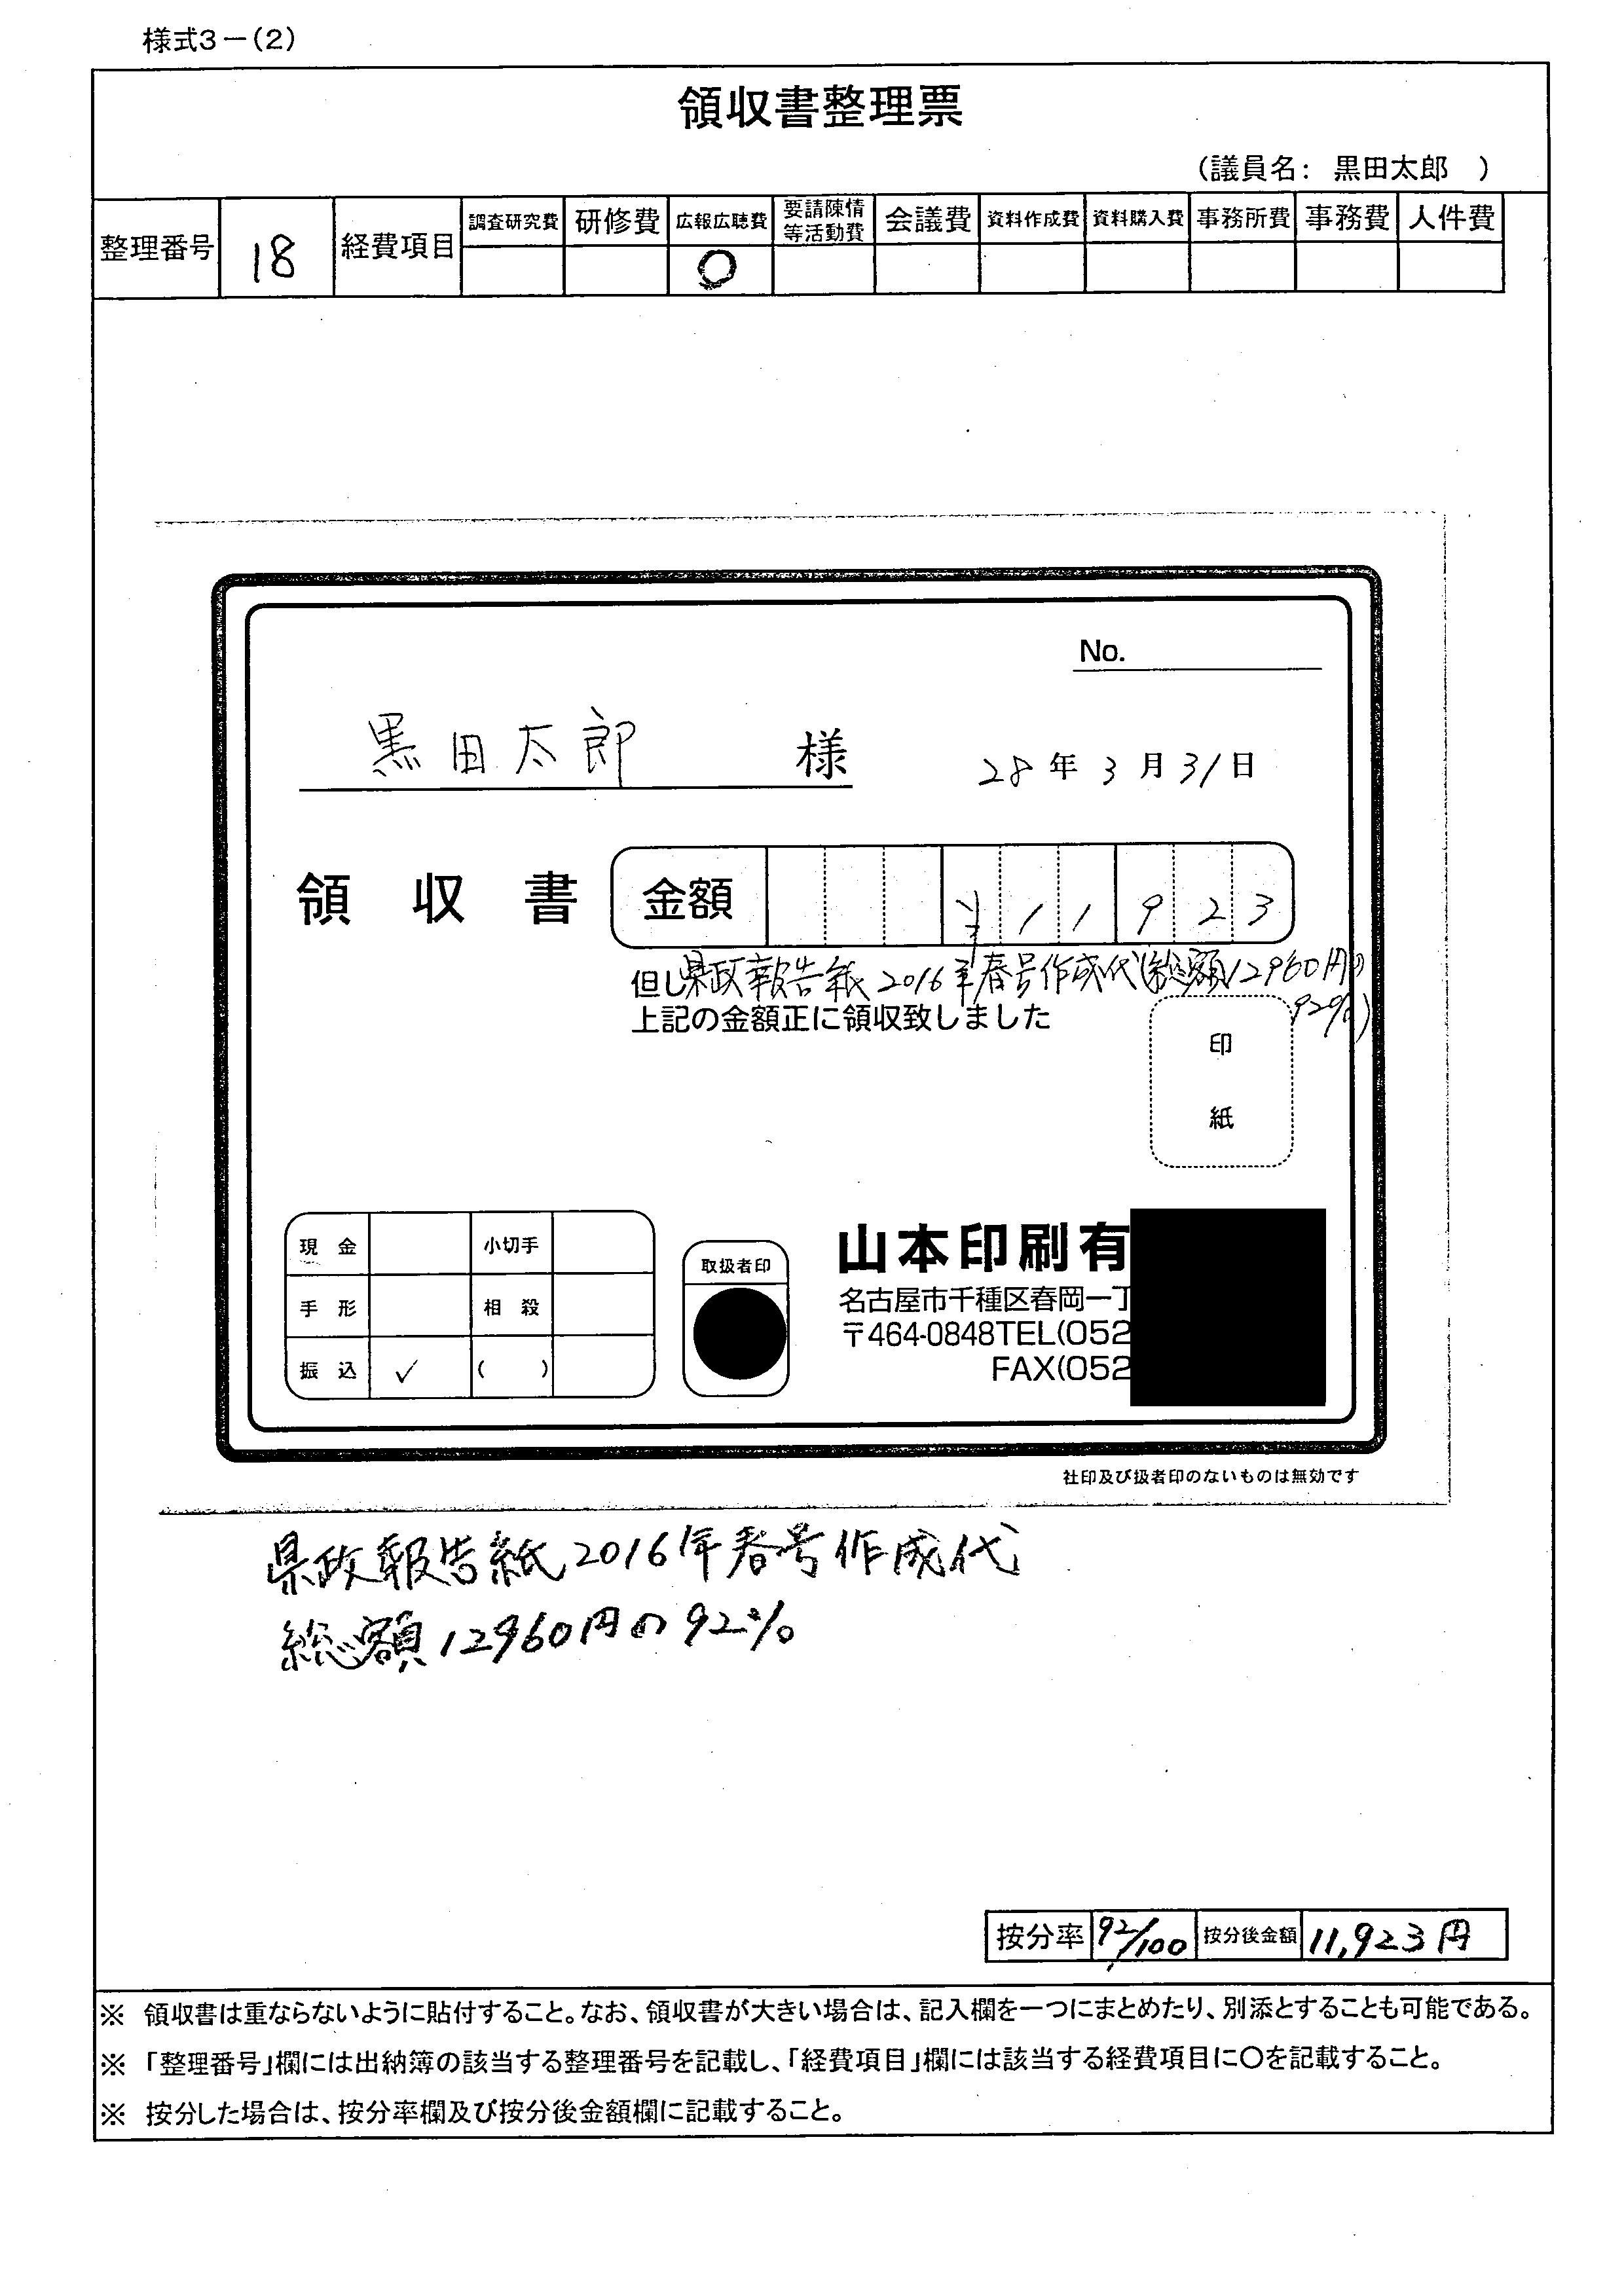 様式3－(2)
領収書整理票
(議員名： 黒田太郎 )
整理番号 18 経費項目 調査研究費 研修費 広報広聴費 要請陳情等活動費 会議費 資料作成費 資料購入費 事務所費 事務費 人件費
○
No.
黒田太郎 様 28年3月31日
領収書 金額 ¥11923
但し県政報告紙2016年春号作成代(総額12960円の
92%)
上記の金額正に領収致しました
印
紙
現金 小切手
手形 相殺
振込 ✓ ( )
取扱者印
山本印刷有
名古屋市千種区春岡一丁
〒464-0848TEL(052
FAX(052
社印及び扱者印のないものは無効です
県政報告紙2016年春号作成代
総額12960円の92%
按分率 92/100 按分後金額 11,923円
※ 領収書は重ならないように貼付すること。なお、領収書が大きい場合は、記入欄を一つにまとめたり、別添とすることも可能である。
※ 「整理番号」欄には出納簿の該当する整理番号を記載し、「経費項目」欄には該当する経費項目に○を記載すること。
※ 按分した場合は、按分率欄及び按分後金額欄に記載すること。